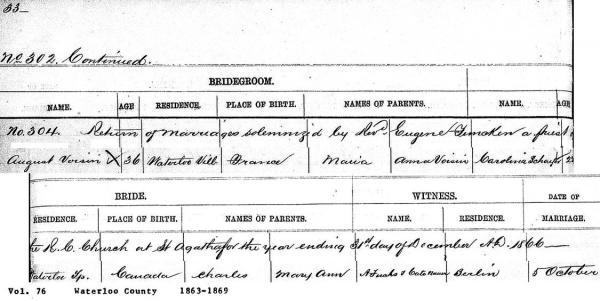 33
No 302. Continued.
BRIDEGROOM.
NAME. AGE RESIDENCE. PLACE OF BIRTH. NAMES OF PARENTS. NAME. AGE
No. 304. Return of marriages solemnized by Revd. Eugene Funcken a priest
August Voisin X 36 Waterloo Vill France Maria Anna Voisin Carolina 22
BRIDE. WITNESS. DATE OF
RESIDENCE. PLACE OF BIRTH. NAMES OF PARENTS. NAME. RESIDENCE. MARRIAGE.
the R. C. Church at St Agatha for the year ending 31st day of December A.D. 1866
Waterloo Tp. Canada Charles Mary Ann Berlin 5 October
Vol. 76 Waterloo County 1863-1869